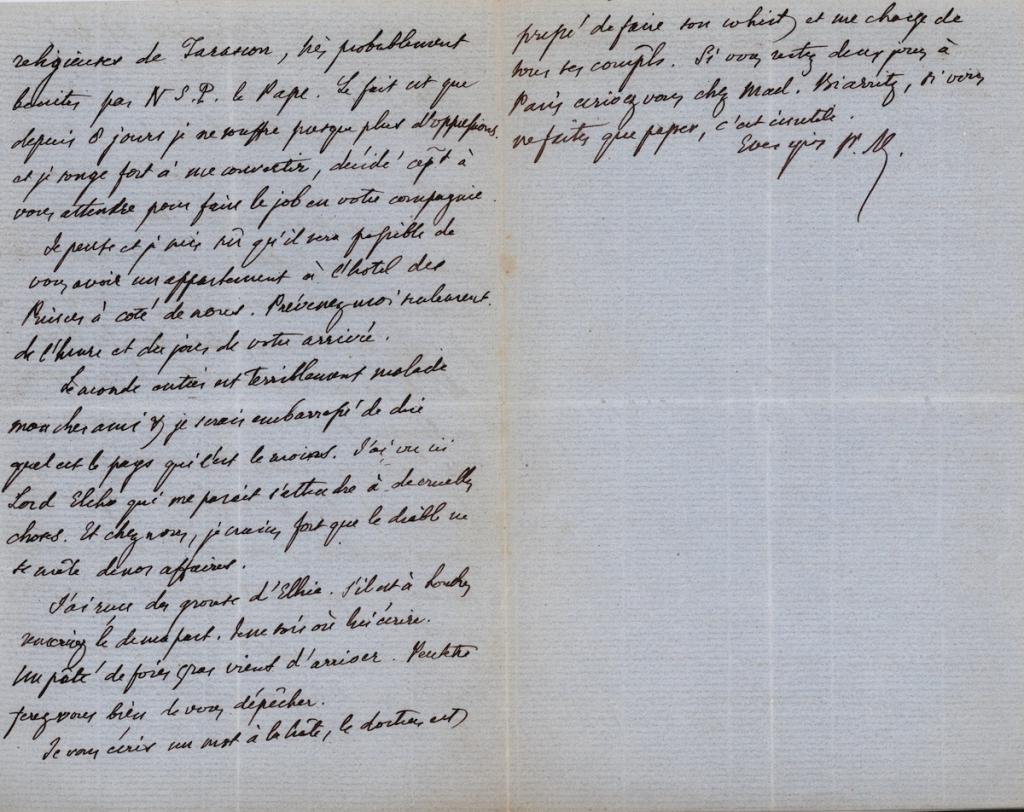 religieuses de Tarascon, très probablement
benites par N S. P. le Pape. Le fait est que
depuis 8 jours je ne souffre presque plus d'oppressions.
et je songe fort à me convertir, décidé cept à
vous attendre pour faire le job en votre compagnie.
Je pense et je suis sûr qu'il sera possible de
vous avoir un appartement à l'hotel des
Princes à coté de nous. Prévenez moi seulement
de l'heure et du jour de votre arrivée.
Le monde entier est terriblement malade
mon cher ami & je serais embarrassé de dire
quel est le pays qui l'est le moins. J'ai vu ici
Lord Elcho qui me parait s'attendre à de cruelles
choses. Et chez nous, je crains fort que le diable ne
se mêle de nos affaires.
J'ai reçu des grouse d'Ellice. S'il est à Londres
remerciez le de ma part. Je ne sais où lui écrire.
Un pâté de foies gras vient d'arriver. Peutetre
ferez vous bien de vous dépêcher.
Je vous écris un mot à la hâte, le docteur est
pressé de faire son whist et me charge de
tous ses compts. Si vous restez deux jours à
Paris ecrivez vous chez Mad. Biarritz, si vous
ne faites que passer, c'est inutile.
Ever yours P. M.